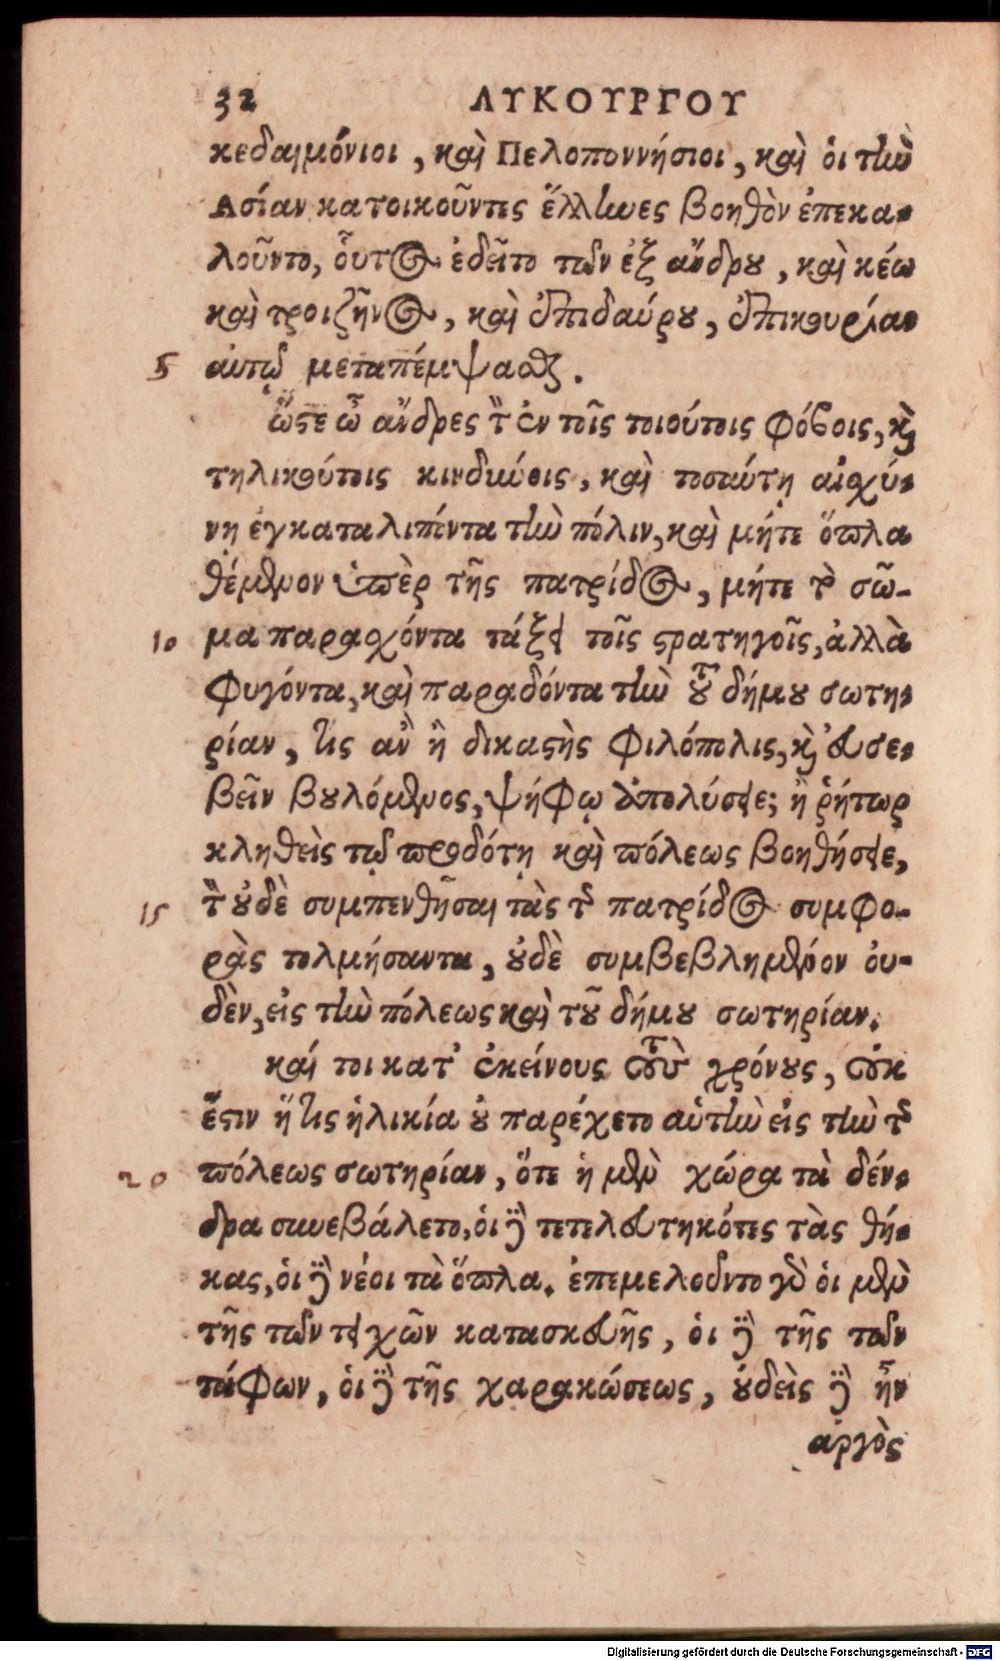 32 ΛΥΚΟΥΡΓΟΥ
κεδαιμόνιοι, καὶ Πελοποννήσιοι, καὶ ὁι τὴν
Ασίαν κατοικοῦντες ἕλληνες βοηθὸν ἐπεκα-
λοῦντο, οὗτος ἐδεῖτο τῶν ἐξ ἄνδρου, καὶ κέω
καὶ τροιζῆνος, καὶ ἐπιδαύρου, ἐπικουρίαν
5 αὑτῷ μεταπέμψασθαι.
ὥστε ὦ ἄνδρες τὸν ἐν τοῖς τοιούτοις φόβοις, καὶ
τηλικούτοις κινδύνοις, καὶ τοσαύτῃ αἰσχύ-
νῃ ἐγκαταλιπόντα τὴν πόλιν, καὶ μήτε ὅπλα
θέμενον ὑπὲρ τῆς πατρίδος, μήτε τὸ σῶ-
10 μα παρασχόντα τάξαι τοῖς στρατηγοῖς, ἀλλὰ
φυγόντα, καὶ παραδόντα τὴν τοῦ δήμου σωτη-
ρίαν, τίς ἂν ἢ δικαστὴς φιλόπολις, καὶ εὐσε-
βεῖν βουλόμενος, ψήφῳ ἀπολύσειε; ἢ ῥήτωρ
κληθεὶς τῷ προδότῃ καὶ πόλεως βοηθήσειε,
15 τὸν οὐδὲ συμπενθῆσαι τὰς τῆς πατρίδος συμφο-
ρὰς τολμήσαντα, οὐδὲ συμβεβλημένον οὐ-
δὲν, εἰς τὴν πόλεως καὶ τοῦ δήμου σωτηρίαν.
καί τοι κατ' ἐκείνους τοὺς χρόνους, οὐκ
ἔστιν ἥτις ἡλικία οὐ παρέχετο αὑτὴν εἰς τὴν τῆς
20 πόλεως σωτηρίαν, ὅτε ἡ μὲν χώρα τὰ δέν-
δρα συνεβάλετο, ὁι δὲ τετελευτηκότες τὰς θή-
κας, ὁι δὲ νέοι τὰ ὅπλα. ἐπεμελοῦντο γὰρ ὁι μὲν
τῆς τῶν τειχῶν κατασκευῆς, ὁι δὲ τῆς τῶν
τάφων, ὁι δὲ τῆς χαρακώσεως, οὐδεὶς δὲ ἦν
ἀργὸς
Digitalisierung gefördert durch die Deutsche Forschungsgemeinschaft - DFG